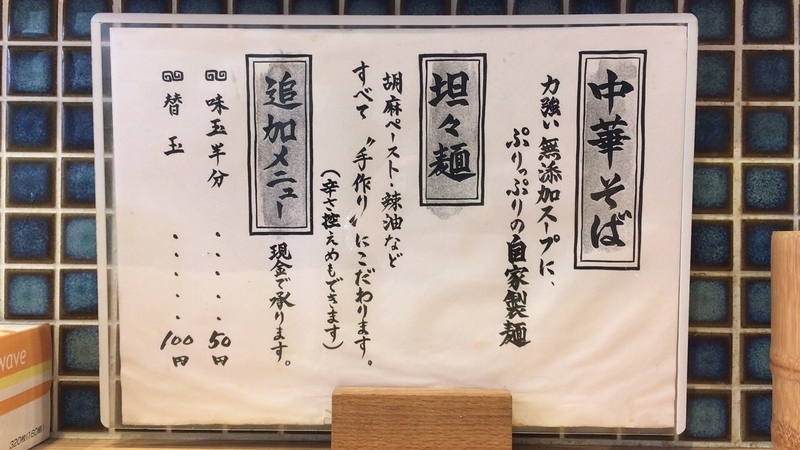 中華そば
力強い無添加スープに、
ぷりっぷりの自家製麺
坦々麺
胡麻ペースト・辣油など
すべて〝手作り〟にこだわります。
(辛さ控えめもできます)
追加メニュー
現金で承ります。
味玉半分・・・・・50円
替玉・・・・・100円
wave
320枚(160組)